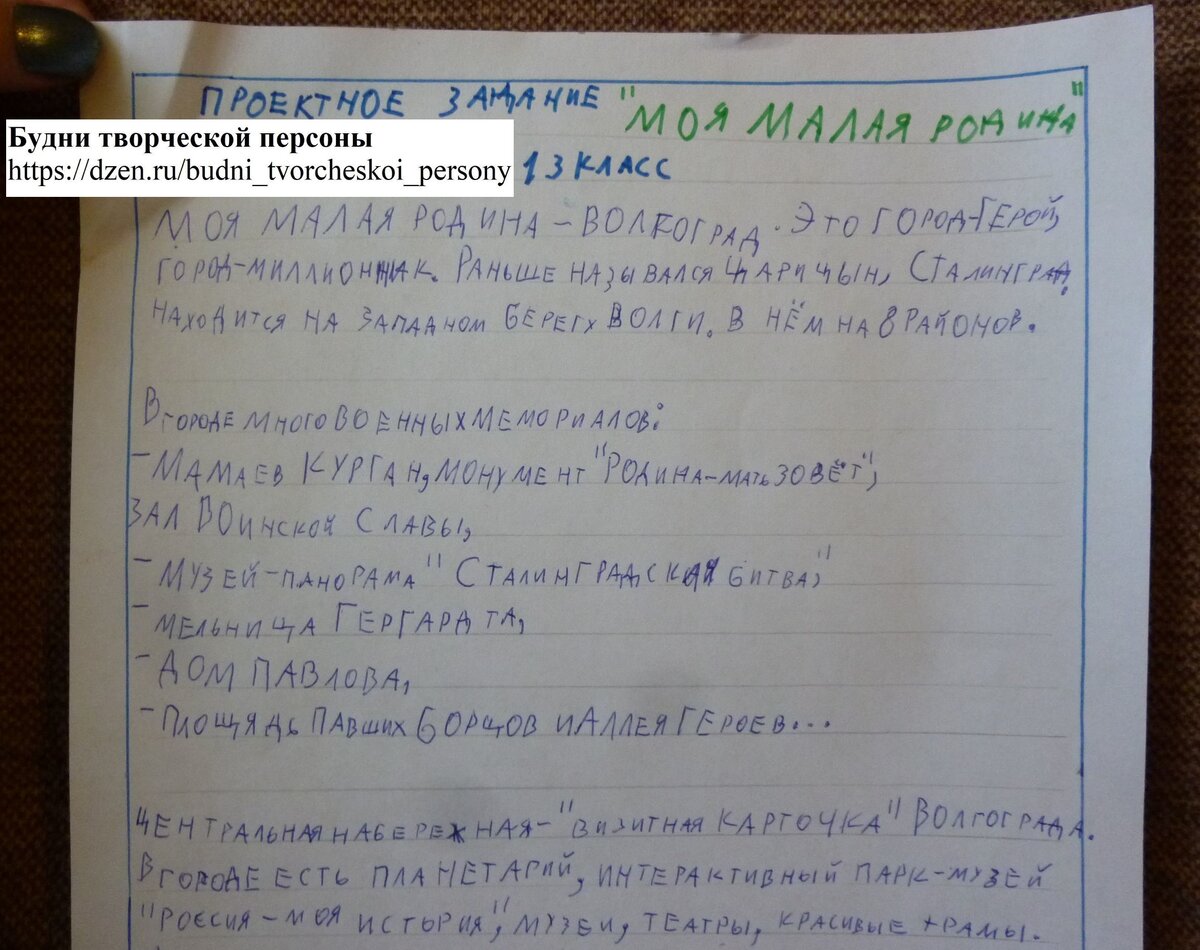 ПРОЕКТНОЕ ЗАДАНИЕ "МОЯ МАЛАЯ РОДИНА"
Будни творческой персоны
https://dzen.ru/budni_tvorcheskoi_persony
1 З КЛАСС
МОЯ МАЛАЯ РОДИНА – ВОЛГОГРАД. ЭТО ГОРОД-ГЕРОЙ,
ГОРОД-МИЛЛИОННАК. РАНЬШЕ НАЗЫВАЛСЯ ЦАРИЦЫН, СТАЛИНГРАД.
НАХОДИТСЯ НА ЗАПАДНОМ БЕРЕГУ ВОЛГИ. В НЁМ НА 8 РАЙОНОВ.
В ГОРОДЕ МНОГО ВОЕННЫХ МЕМОРИАЛОВ:
– МАМАЕВ КУРГАН, МОНУМЕНТ "РОДИНА-МАТЬ ЗОВЁТ",
ЗАЛ ВОИНСКОЙ СЛАВЫ,
– МУЗЕЙ-ПАНОРАМА "СТАЛИНГРАДСКАЯ БИТВА,"
– МЕЛЬНИЦА ГЕРГАРДТА,
– ДОМ ПАВЛОВА,
– ПЛОЩЯДЬ ПАВШИХ БОРЦОВ И АЛЛЕЯ ГЕРОЕВ...
ЦЕНТРАЛЬНАЯ НАБЕРЕЖНАЯ – "ВИЗИТНАЯ КАРТОЧКА" ВОЛГОГРАДА.
В ГОРОДЕ ЕСТЬ ПЛАНЕТАРИЙ, ИНТЕРАКТИВНЫЙ ПАРК-МУЗЕЙ
"РОССИЯ – МОЯ ИСТОРИЯ", МУЗЕИ, ТЕАТРЫ, КРАСИВЫЕ ХРАМЫ.